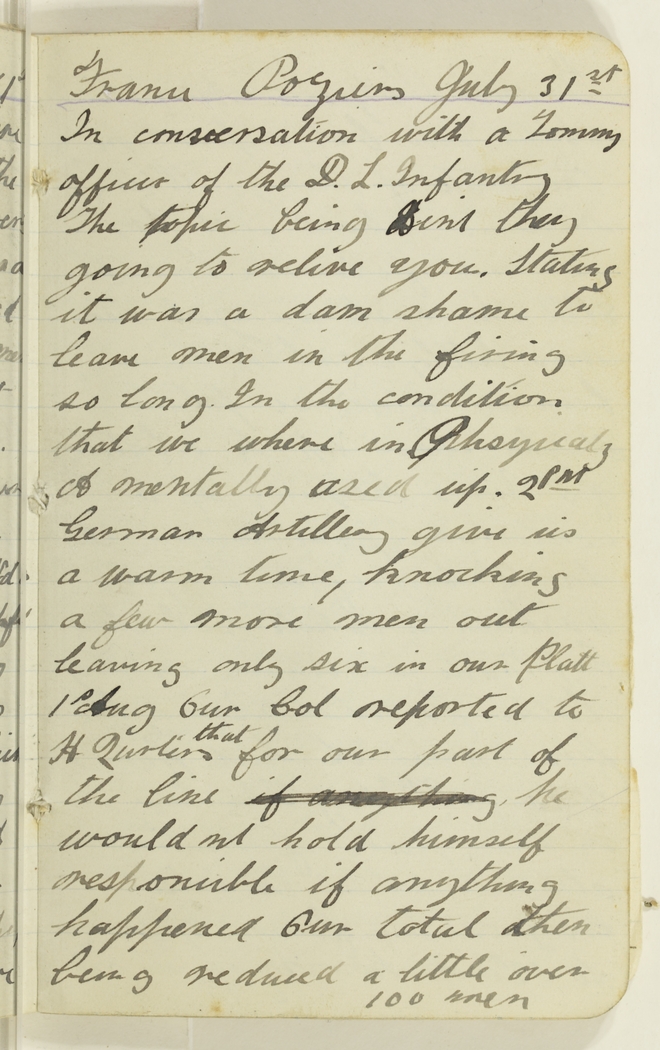 France Poziers July 31st
In conversation with a Tommy
officer of the D. L. Infantry
The topic being Aint they
going to relive you. Stating
it was a dam shame to
leave men in the firing
so long. In the condition
that we where in Phsyically
& mentally used up. 2 PM
German Artillery give us
a warm time, knocking
a few more men out
leaving only six in our Platt
1st Aug Our Col reported to
H Qurters that for our part of
the line if anything he
wouldnt hold himself
responsible if anything
happened Our total then
being reduced a little over
100 men